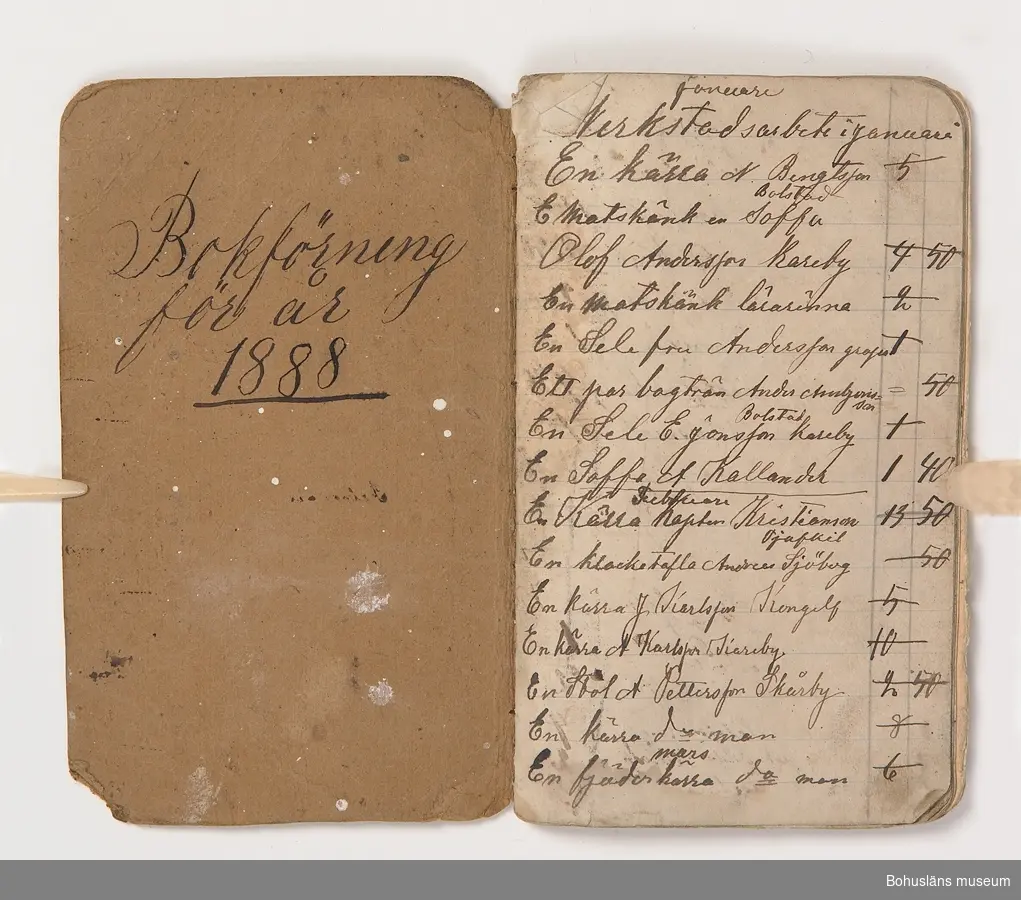 Bokförning
för år
1888
januari
Verkstadsarbete i januari
En kärra A Bengtsson 5
Bolstad
E matskänk en Soffa
Olof Andersson Kareby 4 50
En matskänk lärarinna 2
En Sele fru Andersson 1
Ett par bogträn Ander = 50
Bolstad
En Sele E. Jonsson Kareby 1
En Soffa A Kallander 1 40
Febrruari
En Kärra Kapten Kristianson 13 50
En klocketafla Andreas Sjöbog 50
En kärra J Karlsson Kongelf 5
En kärra A Karlsson Kareby 10
En Stol A Pettersson Skårby 2 50
En kärra do man 8
mars
En fjäderkärra do man 6
Bohusläns museum